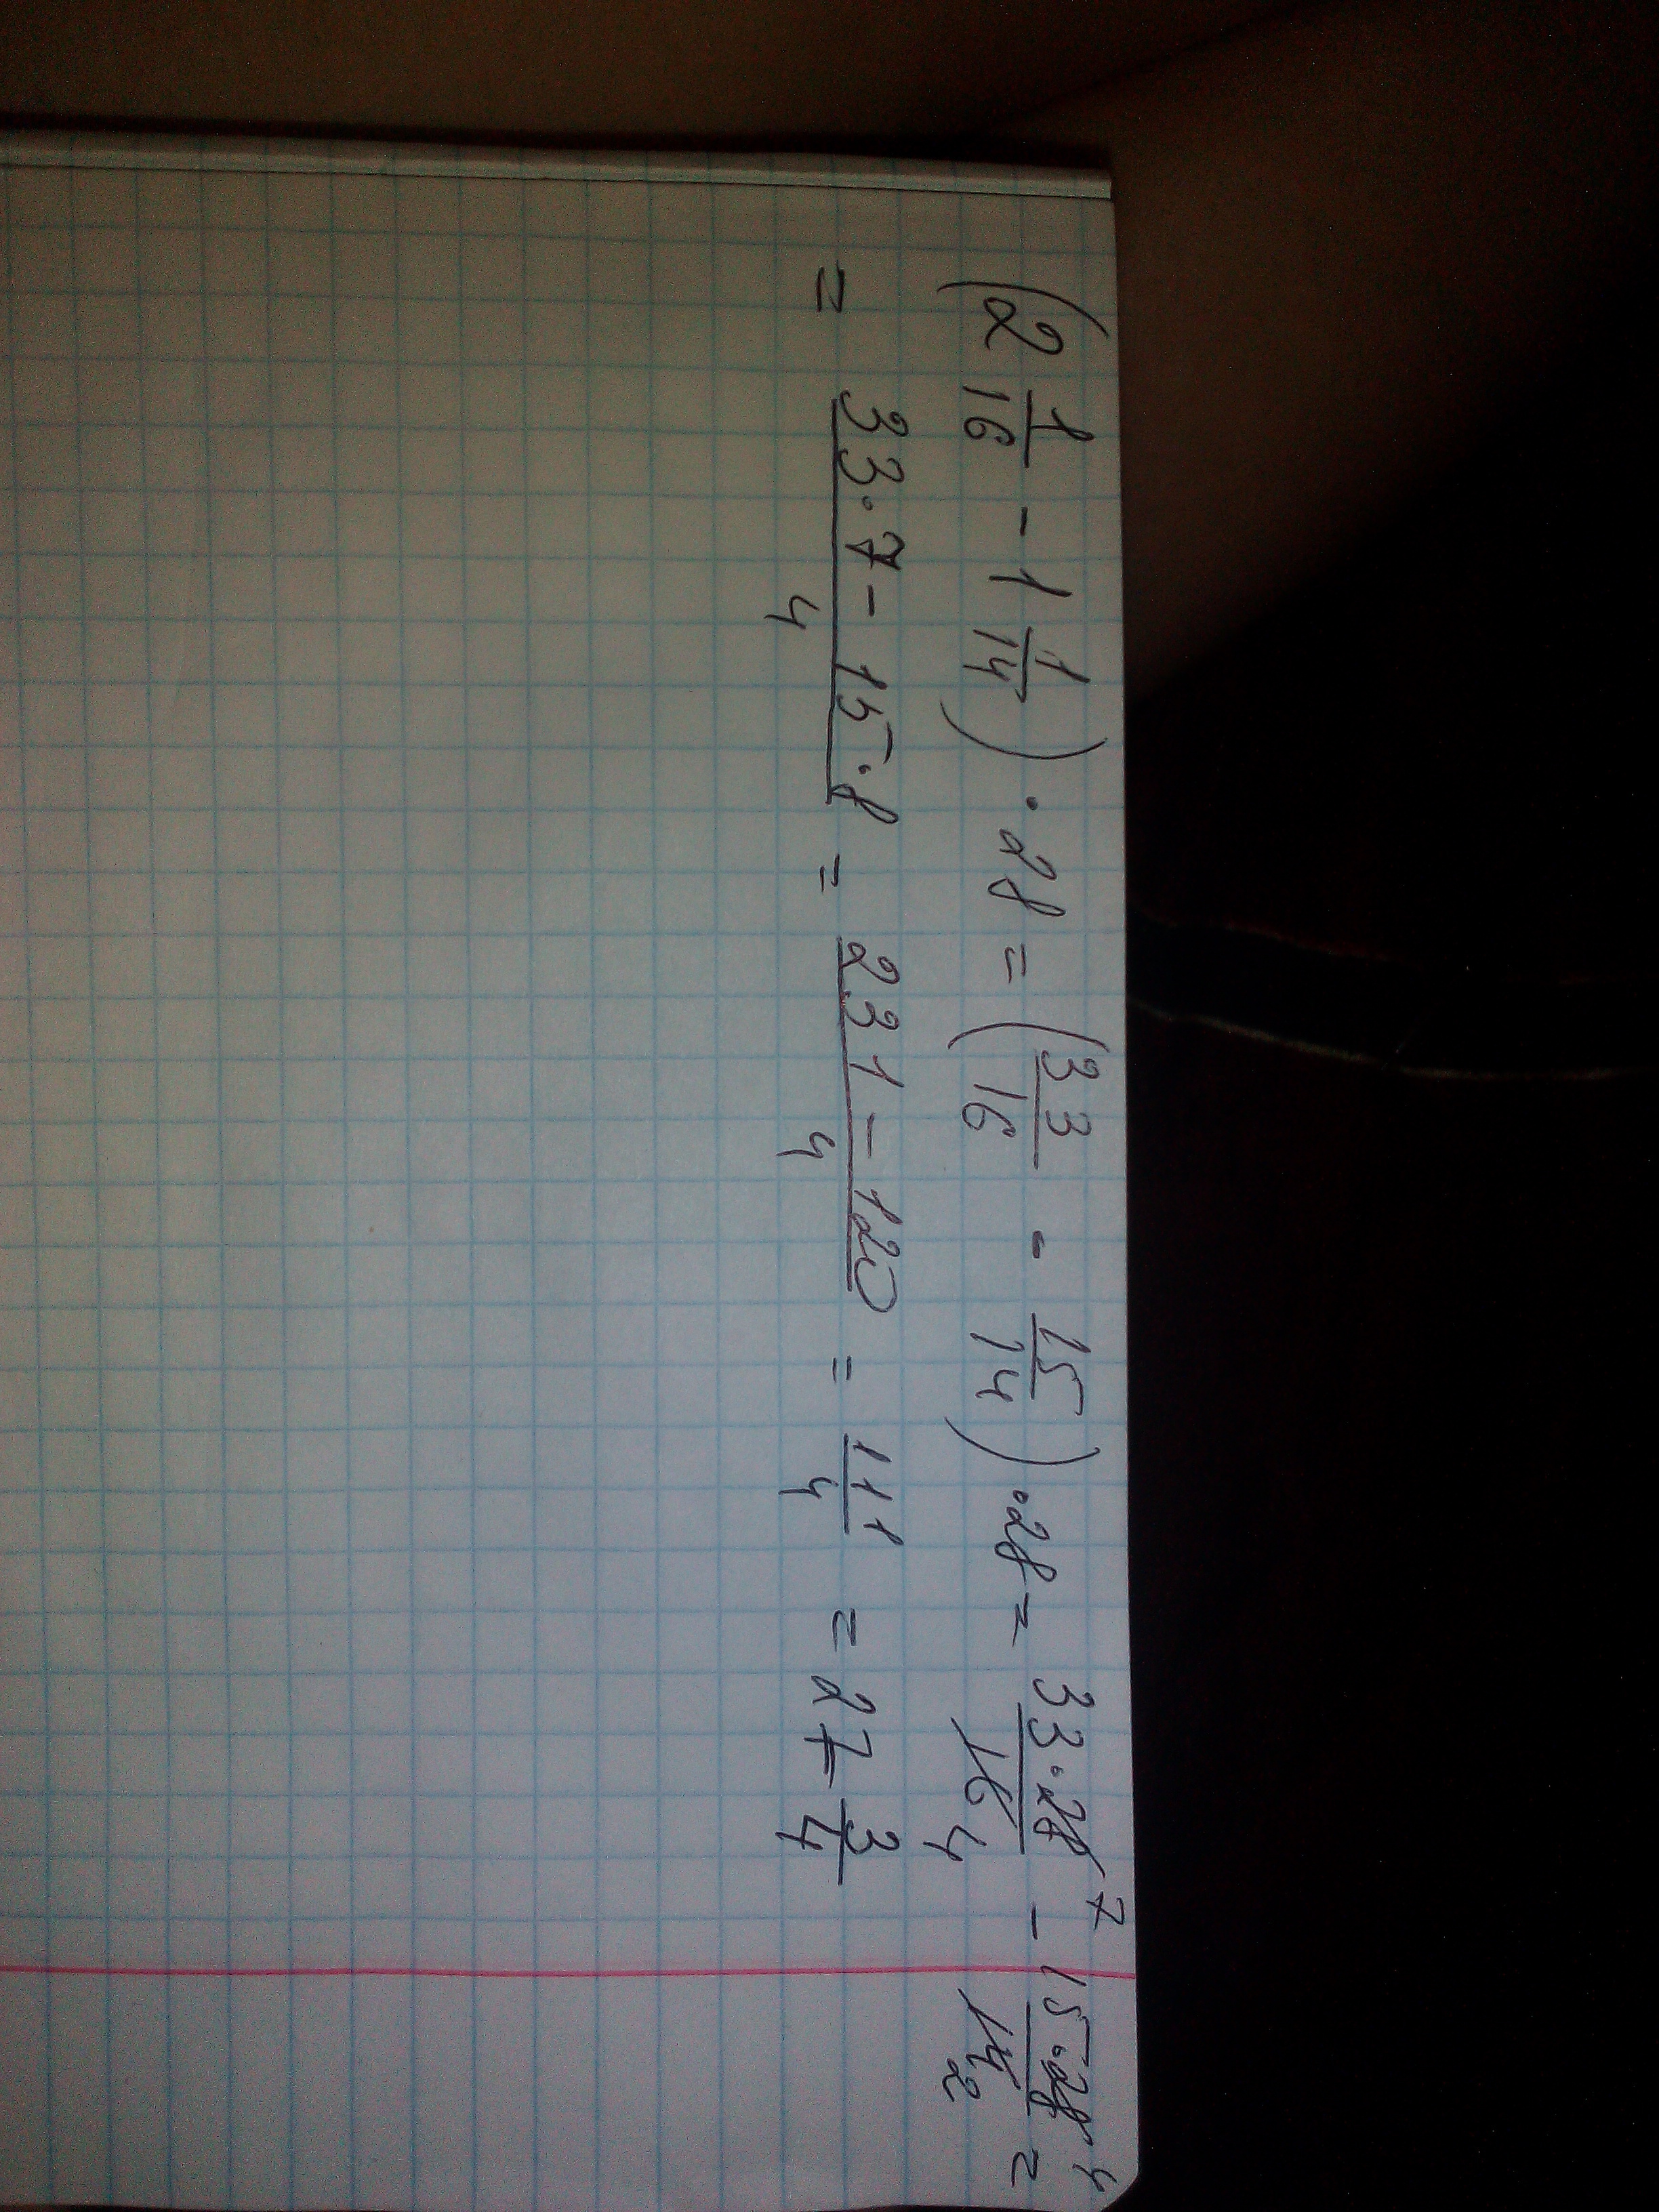 (2 1/16 - 1 1/14) · 28 = (33/16 - 15/14) · 28 = 33·28 7/16 4 - 15·28 4/14 2 =
= 33·7 - 15·8/4 = 231 - 120/4 = 111/4 = 27 3/4